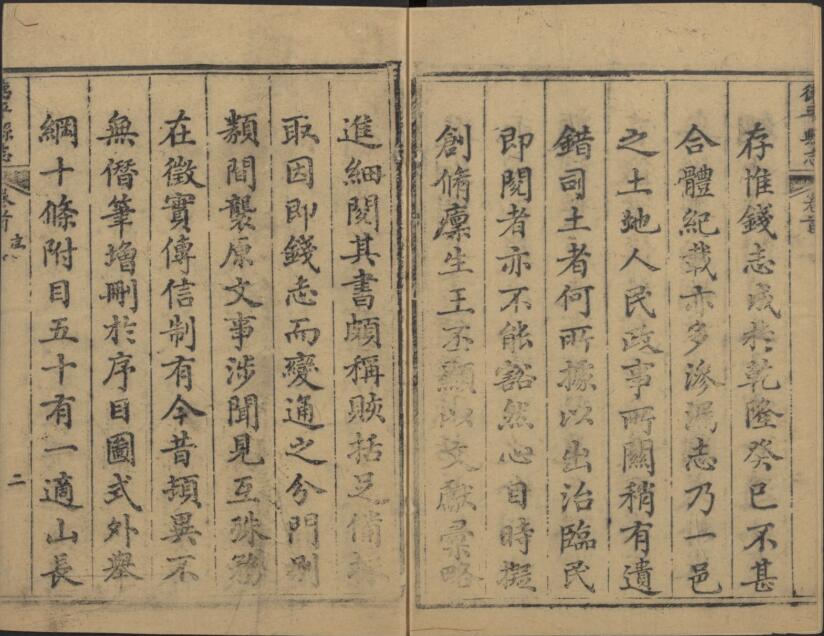 德平縣志
卷首
存惟錢志成於乾隆癸巳不甚
合體紀載亦多滲漏志乃一邑
之土地人民政事所關稍有遺
錯司土者何所據以出治臨民
即閱者亦不能豁然心目時擬
創脩廩生王丕顯以文獻彙略
進細閱其書頗稱賅括足備
取因即錢志而變通之分門別
類間襲原文事涉聞見互殊務
在徵實傳信制有今昔頓異不
無僭筆增刪於序目圖式外舉
綱十條附目五十有一適山長
德平縣志
卷首
二